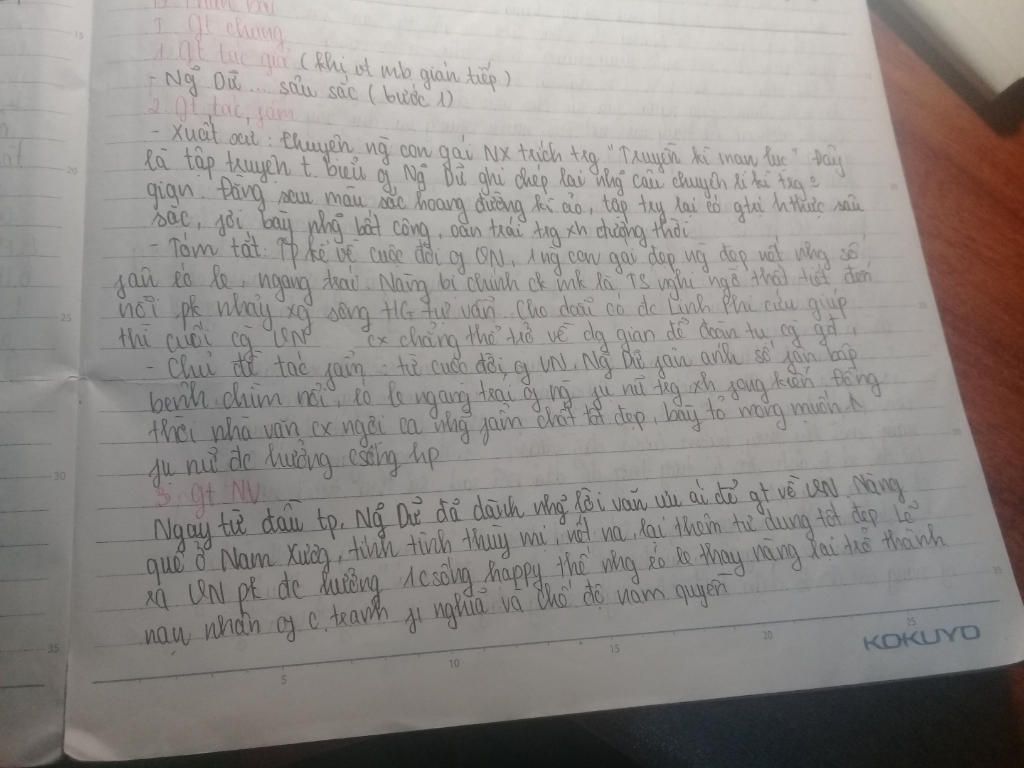 I. gt chung
1. gt tác giả (khi vt mb gián tiếp)
- Ng̃ Dữ ... sâu sắc (bước 1)
2. gt tác fẩm
- Xuất xứ: Chuyện ng̃ con gái NX trích trg "Truyền kì mạn lục" Đây
là tập truyện t. biểu Ng̃ Dữ ghi chép lại nhg̃ câu chuyện li kì trg
gian. Đằng sau màu sắc hoang đường kì ảo, tập try lại có gtrị h thực sâu
sắc, fơi bày nhg̃ bất công, oan trái trg xh đương thời
- Tóm tắt: TP kể về cuộc đời VN, 1 ng con gái đẹp ng đẹp nết nhg số
fận éo le, ngang trái. Nàng bị chính ck mk là TS nghi ngờ thất tiết đến
nỗi pk nhảy xg sông HG tự vẫn. Cho dẫu có dc Linh Phi cứu giúp
thì cuối cg̀ VN cx chẳng thể trở về dg gian để đoàn tụ cg̀ gđ.
- Chủ đề tác fẩm: từ cuộc đời VN, Ng̃ Dữ fản ánh số fận bấp
bênh chìm nổi, éo le ngang trái ng̀ fụ nữ trg xh fong kiến. Đồng
thời nhà văn cx ngợi ca nhg̃ fẩm chất tốt đẹp, bày tỏ mong muốn
fụ nữ dc hưởng csống hp
3. gt NV
Ngay từ đầu tp, Ng̃ Dữ đã dành nhg̃ lời văn ưu ái để gt về VN. Nàng
quê ở Nam Xương, tính tình thùy mị, nết na, lại thêm tư dung tốt đẹp. Lẽ
ra VN pk dc hưởng 1 csống happy thế nhg éo le thay nàng lại trở thành
nạn nhân c. tranh fi nghĩa và chế độ nam quyền
5 10 15 20 25
KOKUYO
15
20
25
30
35